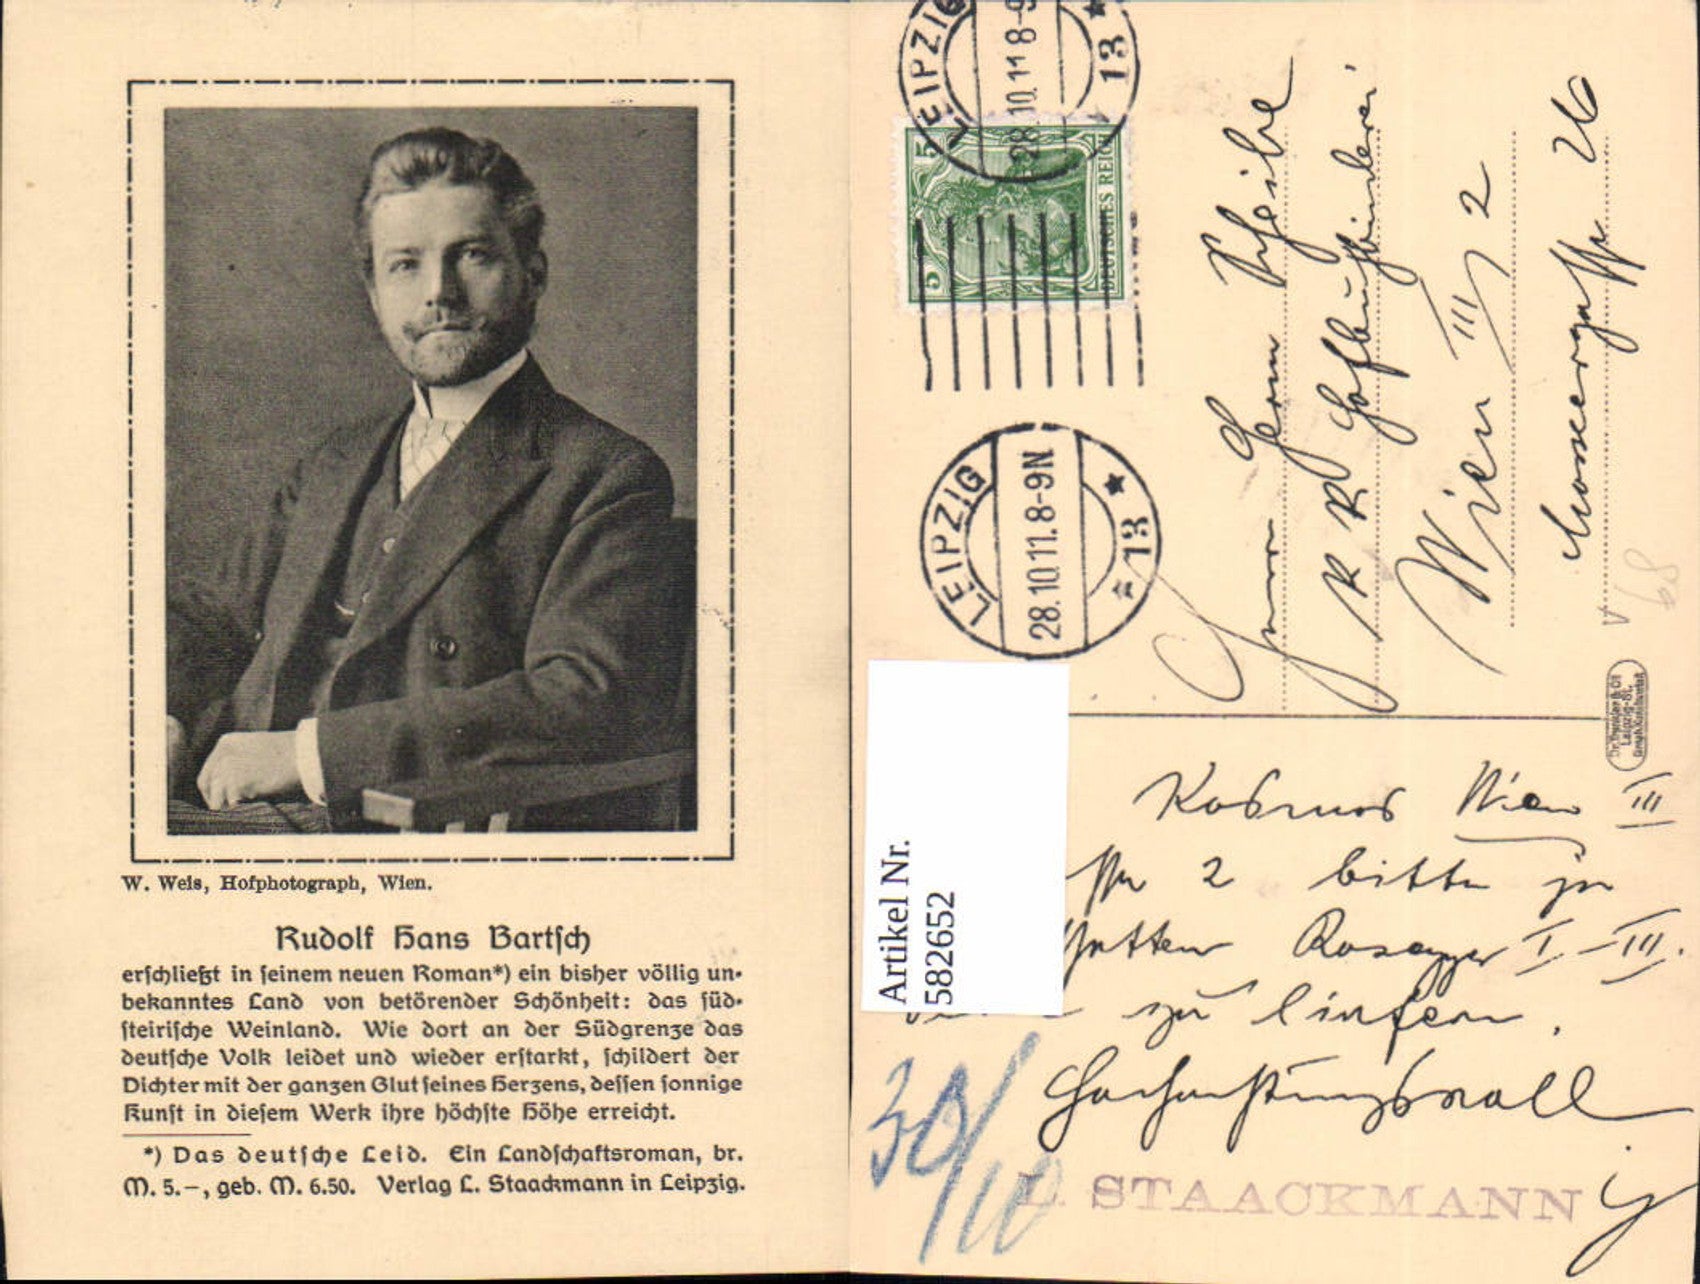 W. Weis, Hofphotograph, Wien.
Rudolf Hans Bartsch
erschließt in seinem neuen Roman*) ein bisher völlig un-
bekanntes Land von betörender Schönheit: das süd-
steirische Weinland. Wie dort an der Südgrenze das
deutsche Volk leidet und wieder erstarkt, schildert der
Dichter mit der ganzen Glut seines Herzens, dessen sonnige
Kunst in diesem Werk ihre höchste Höhe erreicht.
*) Das deutsche Leid. Ein Landschaftsroman, br.
M. 5.–, geb. M. 6.50. Verlag L. Staackmann in Leipzig.
LEIPZIG
28.10.11 8-9
13
5
5
DEUTSCHES REICH
LEIPZIG
28.10.11.8-9N
13
Herrn Scheibe
K K Hofbuchbinderei
Wien III/2
Marxergasse 26
68
Artikel Nr.
582652
Kosmos Wien III
2 bitte
Rosegger I–III.
zu liefern.
Hochachtungsvoll
30/10
L. STAACKMANN